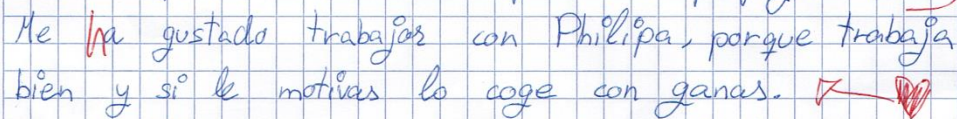 Me ha gustado trabajar con Philipa, porque trabaja
bien y si le motivas lo coge con ganas.